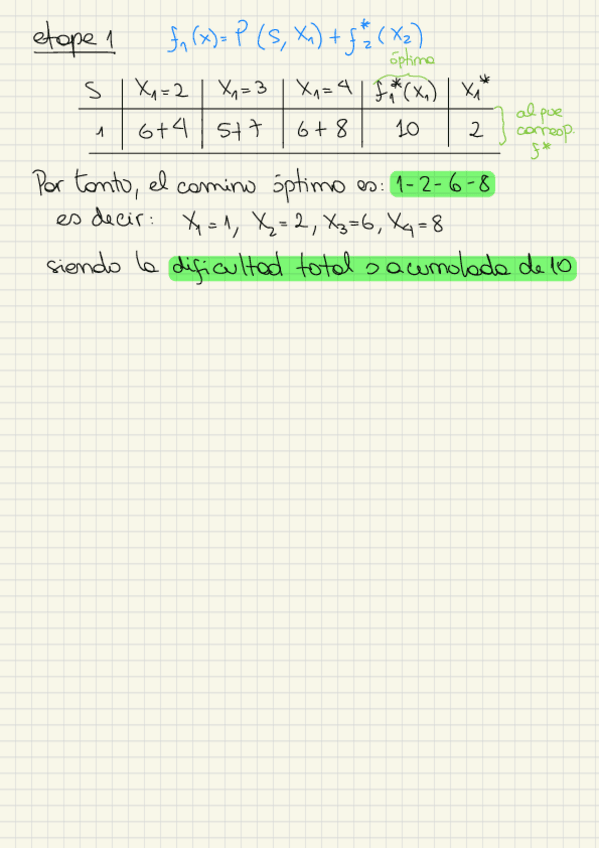 etapa 1 f₁(x) = P(S, X₁) + f₂*(X₂)
óptimo
S | X₁=2 | X₁=3 | X₁=4 | f₁*(X₁) | X₁*
1 | 6+4 | 5+7 | 6+8 | 10 | 2
al que
corresp.
f*
Por tanto, el camino óptimo es: 1-2-6-8
es decir: X₁=1, X₂=2, X₃=6, X₄=8
siendo la dificultad total o acumulada de 10